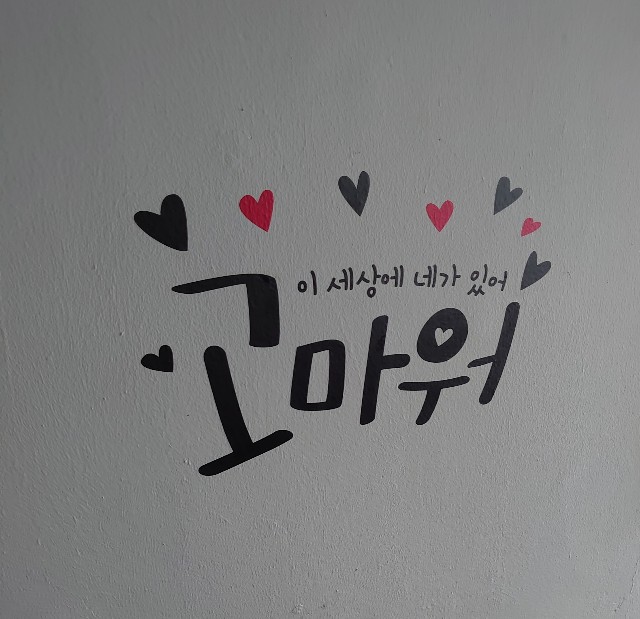 이 세상에 네가 있어
고마워